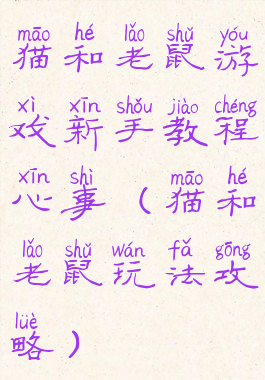 māo hé lǎo shǔ yóu
猫和老鼠游
xì xīn shǒu jiào chéng
戏新手教程
xīn shì māo hé
心事(猫和
lǎo shǔ wán fǎ gōng
老鼠玩法攻
lüè
略)